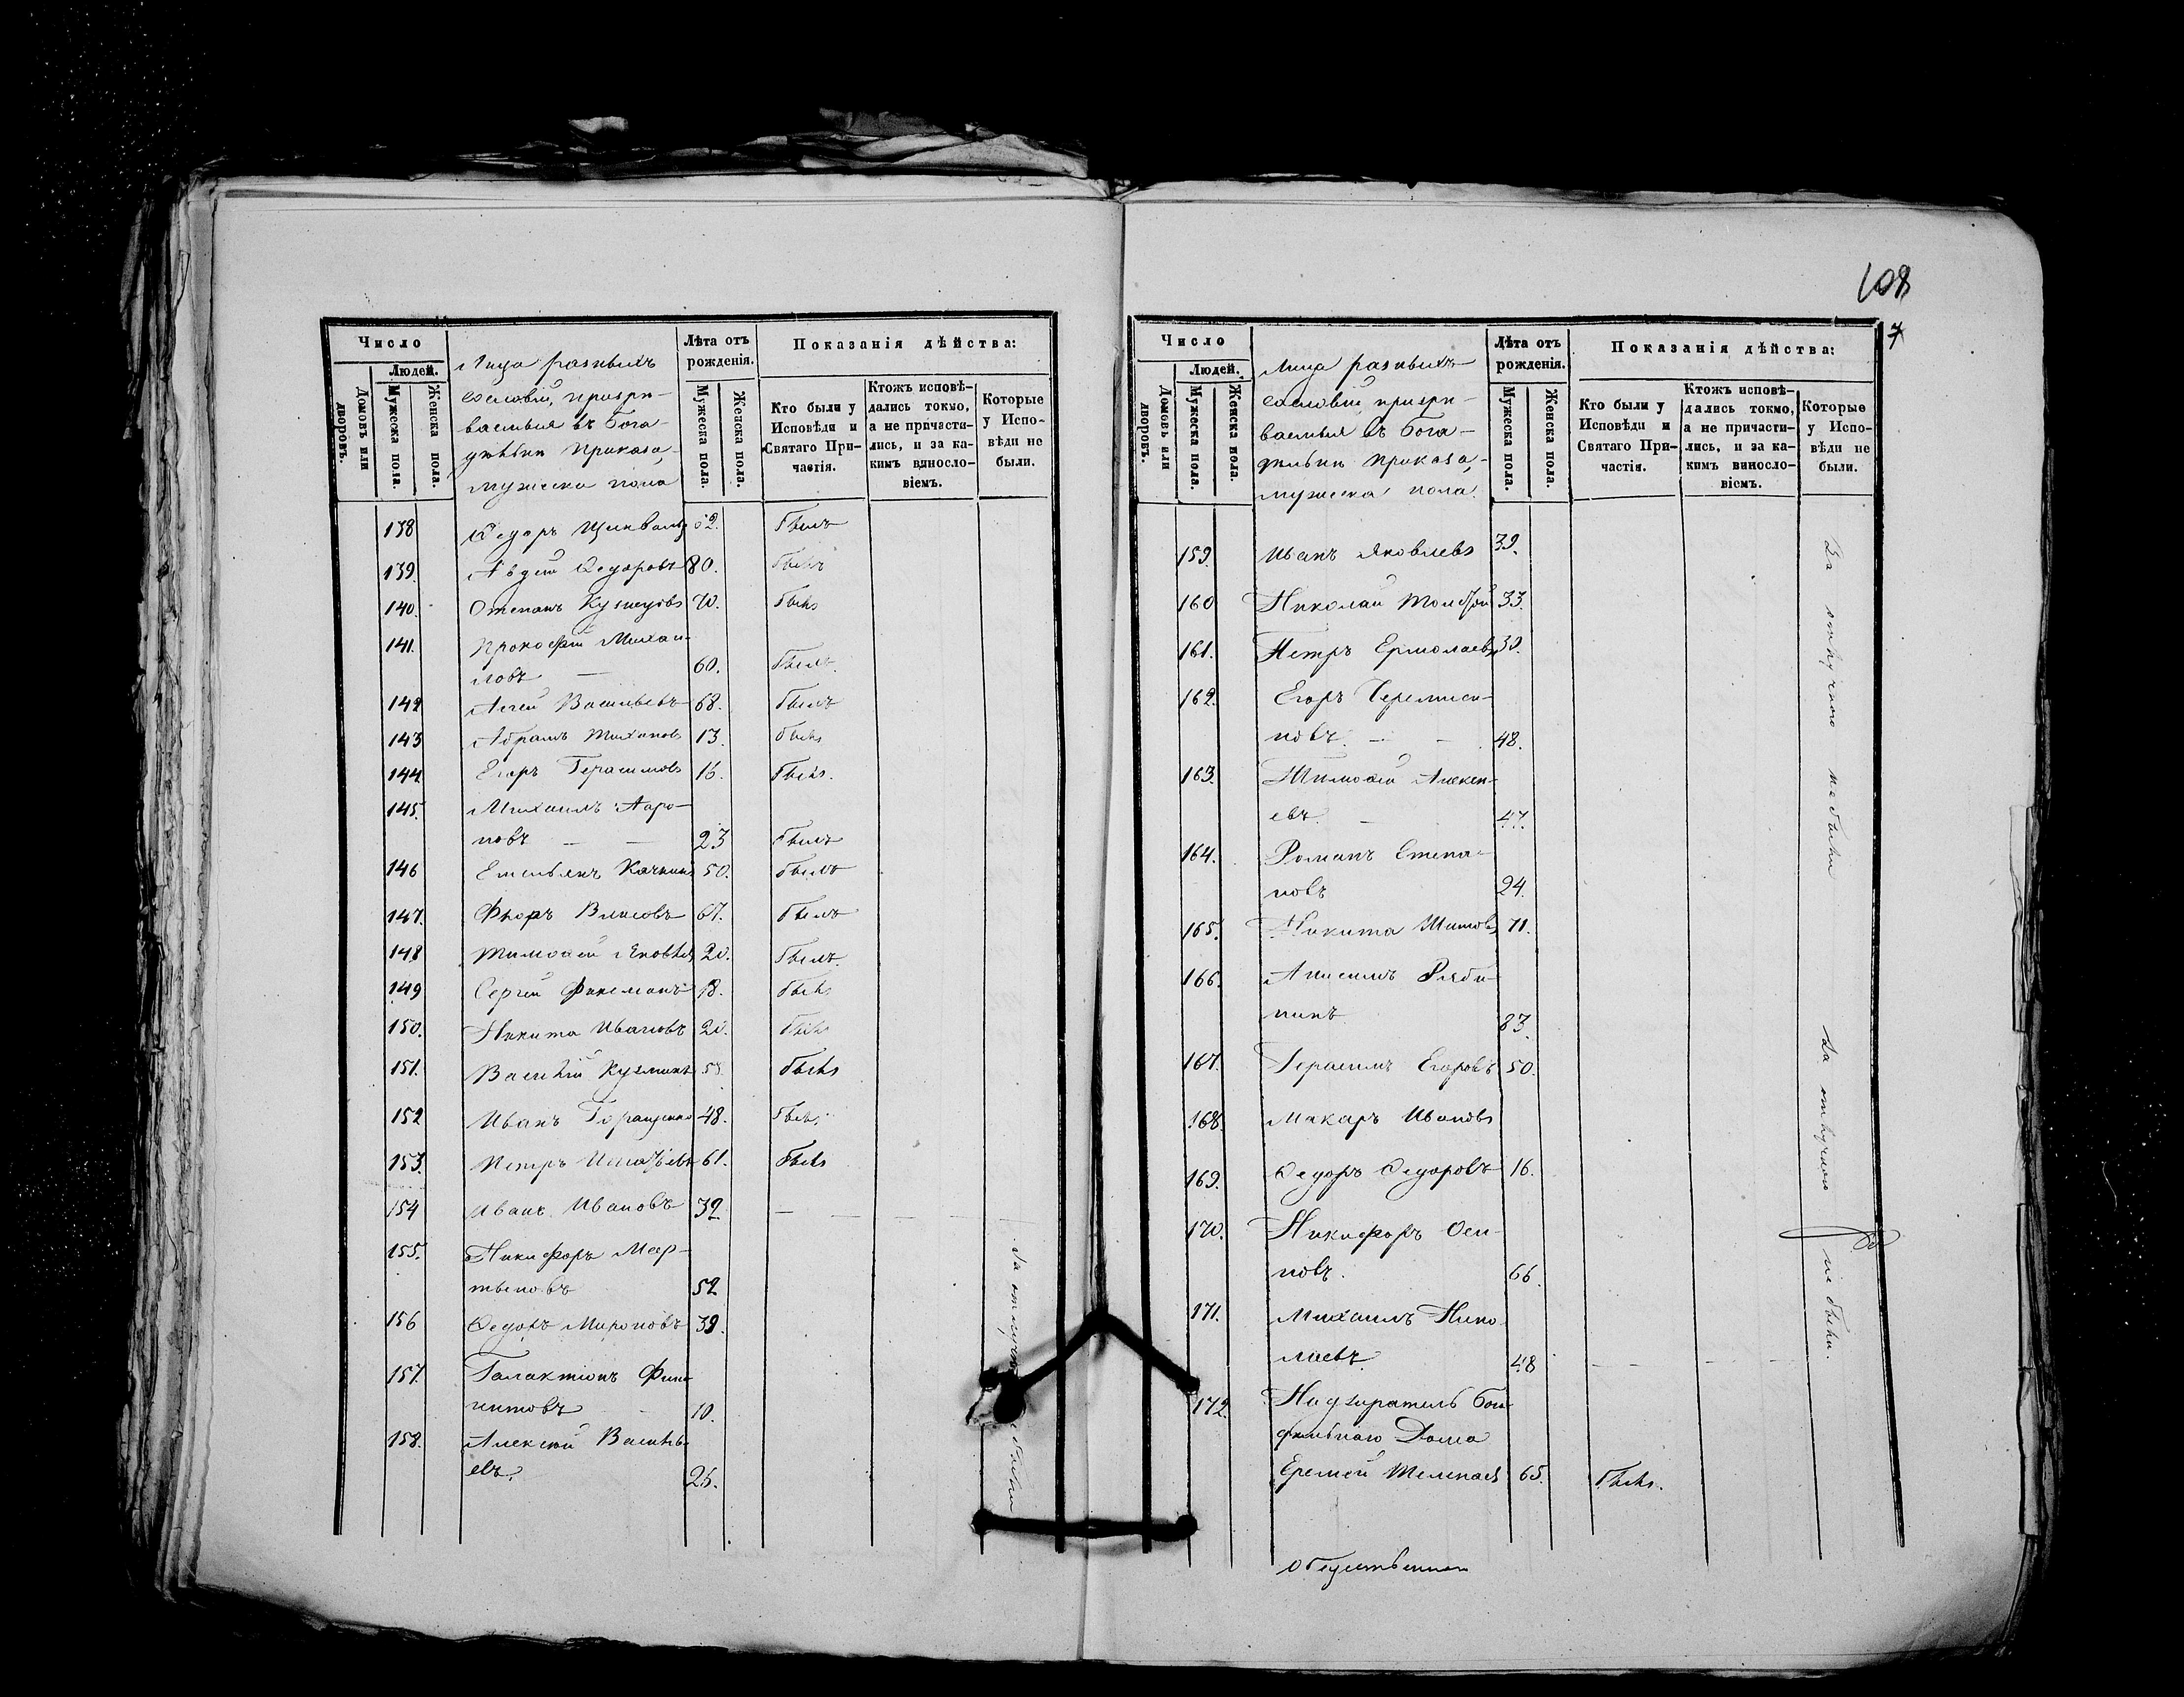 Число
Людей.
Домовъ или дворовъ.
Мужеска пола.
Женска пола.
Лица разныхъ
сословій, призри-
ваемыя въ бога-
дѣльни приказа,
мужеска пола
Лѣта отъ
рожденія.
Мужеска пола.
Женска пола.
Показанія дѣйства:
Кто были у
Исповѣди и
Святаго При-
частія.
Ктожъ исповѣ-
дались токмо,
а не причасти-
лись, и за ка-
кимъ винносло-
віемъ.
Которые
у Испо-
вѣди не
были.
138 Ѳедоръ 62. былъ
139. Авдей Ѳедоровъ 80. былъ
140. Степанъ Кузнецовъ 70. былъ
141. Прокофій Михай-
ловъ — 60. былъ
142 Васильевъ 68. былъ
143 Абрамъ Тихановъ 13. былъ
144 Егоръ Герасимовъ 16. былъ.
145. Михаилъ Ааро-
новъ — — 23 былъ
146 Емельянъ Качкинъ 50. былъ
147. Флоръ Власовъ 67. былъ
148 Тимоѳей Яковлевъ 20. былъ.
149 Сергей 18. былъ
150. Никита Ивановъ 20. былъ
151. Василій Кузминъ 58. былъ
152 Иванъ 48. былъ.
153. Петръ 61. былъ
154 Иванъ Ивановъ 32 — — — —
155. Никифоръ Мар-
тыновъ 52
156 Ѳедоръ Мироновъ 39.
157. Галактіонъ
10.
158. Алексѣй Василь-
евъ. 25.
За отлучкою не были
108
7
Число
Людей.
Домовъ или дворовъ.
Мужеска пола.
Женска пола.
Лица разныхъ
сословій призри-
ваемыя въ бога-
дѣльни приказа,
мужеска пола.
Лѣта отъ
рожденія.
Мужеска пола.
Женска пола.
Показанія дѣйства:
Кто были у
Исповѣди и
Святаго При-
частія.
Ктожъ исповѣ-
дались токмо,
а не причасти-
лись, и за ка-
кимъ винносло-
віемъ.
Которые
у Испо-
вѣди не
были.
159. Иванъ Яковлевъ 39.
160 Николай Толстой 33.
161. Петръ Ермолаевъ 30.
162. Егоръ Черемиси-
новъ. — — 48.
163. Тимоѳей Алексѣ-
евъ. — 47.
164. Романъ Степа-
новъ 24.
165. Никита Титовъ 71.
166. Анисимъ Ряби-
нинъ 83.
167. Герасимъ Егоровъ 50.
168. Макаръ Ивановъ
169. Ѳедоръ Ѳедоровъ 16.
170. Никифоръ Оси-
повъ. 66.
171. Михаилъ Нико-
лаевъ. 48 — — — —
172. Надзиратель бога-
дѣльнаго Дома
Еремей 65. былъ.
За отлучкою не были
За отлучкою не были.
Общественнаго